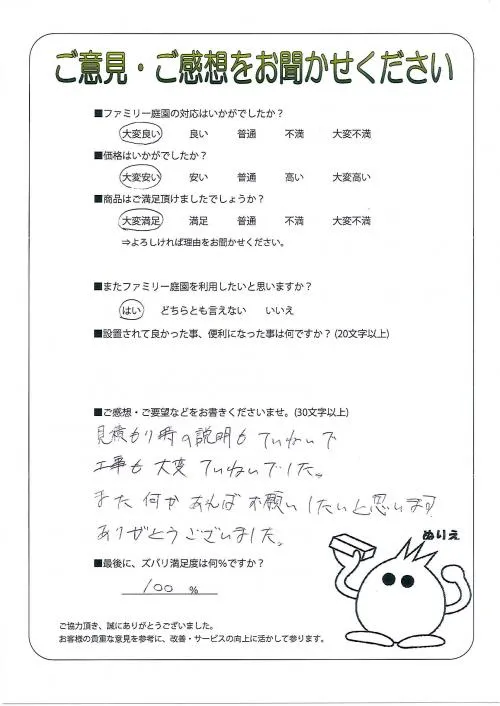 ご意見・ご感想をお聞かせください
■ファミリー庭園の対応はいかがでしたか？
大変良い 良い 普通 不満 大変不満
■価格はいかがでしたか？
大変安い 安い 普通 高い 大変高い
■商品はご満足頂けましたでしょうか？
大変満足 満足 普通 不満 大変不満
⇒よろしければ理由をお聞かせください。
■またファミリー庭園を利用したいと思いますか？
はい どちらとも言えない いいえ
■設置されて良かった事、便利になった事は何ですか？(20文字以上)
■ご感想・ご要望などをお書きくださいませ。(30文字以上)
見積もり時の説明もていねいで
工事も大変ていねいでした。
また何かあればお願いしたいと思います
ありがとうございました。
ぬりえ
■最後に、ズバリ満足度は何％ですか？
100 %
ご協力頂き、誠にありがとうございました。
お客様の貴重な意見を参考に、改善・サービスの向上に活かして参ります。